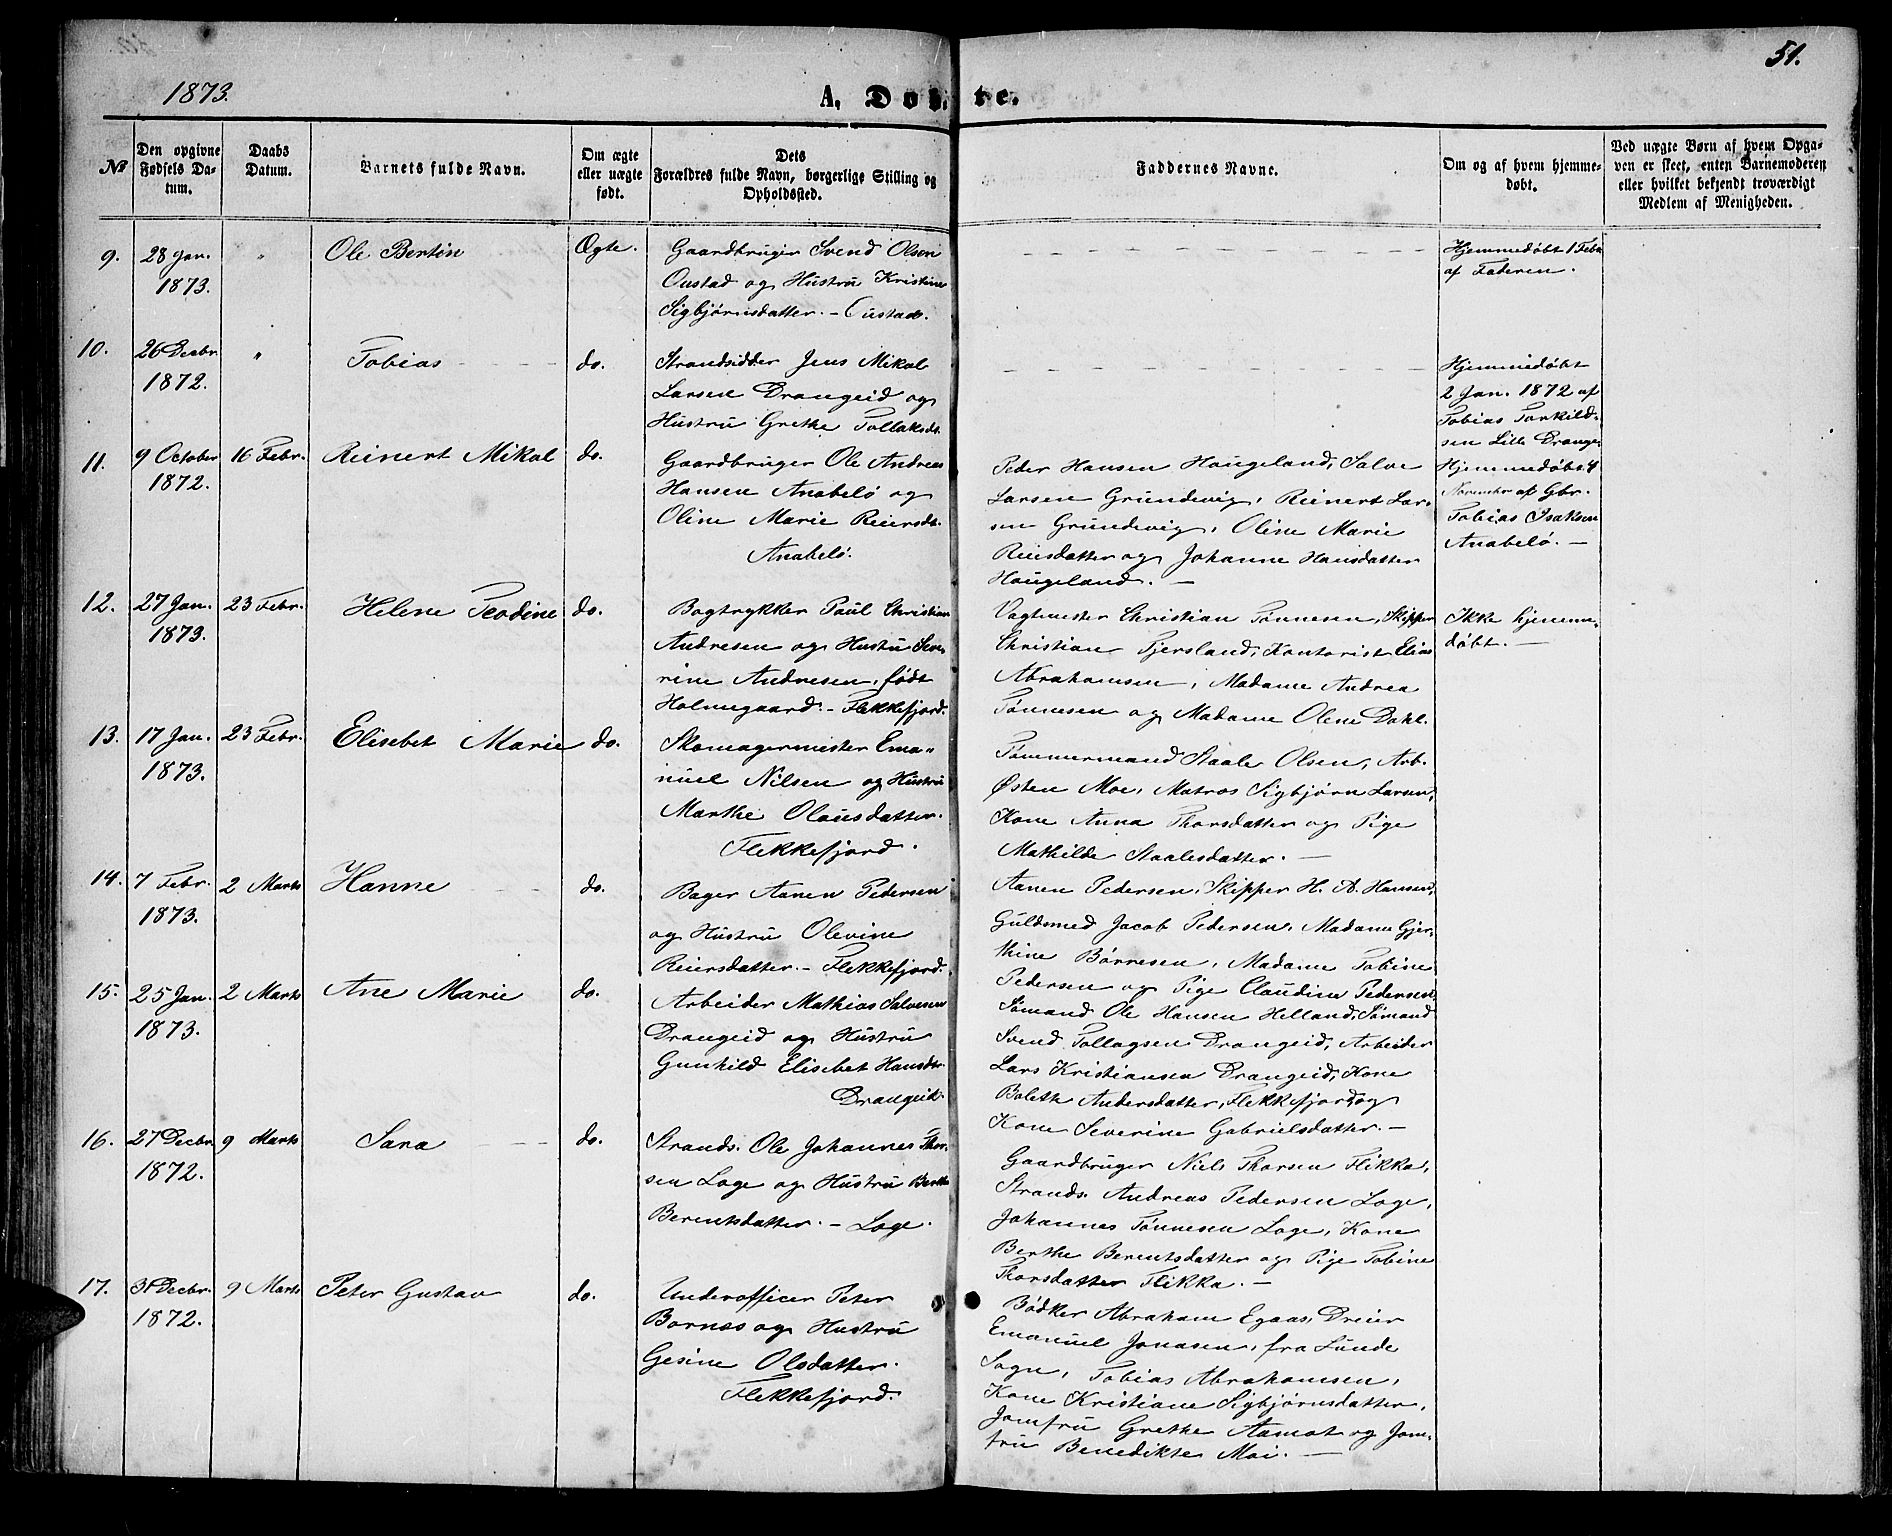 1873.
A. Døbte.
51.
№
Den opgivne Fødsels Datum.
Daabs Datum.
Barnets fulde Navn.
Om ægte eller uægte født.
Dets Forældres fulde Navn, borgerlige Stilling og Opholdssted.
Faddernes Navne.
Om og af hvem hjemmedøbt.
Ved uægte Børn af hvem Opgaven er skeet, enten Barnemoderen eller hvilket bekjendt troværdigt Medlem af Menigheden.
9.
28 Jan.
1873.
"
Ole Bertin
Ægte.
Gaardbruger Svend Olsen
Oustad og Hustru Kristine
Sigbjørnsdatter. - Oustad.
Hjemmedøbt 1 Febr.
af Faderen.
10.
26 Decbr
1872.
"
Tobias
do.
Strandsidder Jens Mikal
Larsen Drangeid og
Hustru Grethe Tollaksdt.
Hjemmedøbt
2 Jan. 1872 af
Tobias Torkild-
sen Lille Drange
11.
9 October
1872.
16 Febr.
Reinert Mikal
do.
Gaardbruger Ole Andreas
Hansen Anabelø og
Oline Marie Reiersdt.
Anabelø.
Peder Hansen Haugeland, Salve
Larsen Grundevig, Reinert Lar-
sen Grundevig, Oline Marie
Reiersdatter og Johanne Hansdatter
Haugeland. -
Hjemmedøbt 4
November af Gbr.
Tobias Isaksen
Anabelø. -
12.
27 Jan.
1873.
23 Febr.
Helene Teodine
do.
Bogtrykker Paul Christian
Andresen og Hustru Seve-
rine Andresen, født
Holmegaard. - Flekkefjord.
Vagtmester Christian Tønnesen, Skipper
Christian Tjersland, Kontorist Elias
Abrahamsen, Madame Andrea
Tønnesen og Madame Olene Dahl.
Ikke hjemme-
døbt. -
13.
17 Jan.
1873.
23 Febr.
Elisebet Marie
do.
Skomagermester Ema-
nuel Nilsen og Hustru
Marthe Olausdatter.
Flekkefjord.
Tømmermand Staale Olsen, Arb.
Østen Moe, Matros Sigbjørn Larsen,
Kone Anna Thorsdatter og Pige
Mathilde Staalesdatter. -
14.
7 Febr.
1873.
2 Marts
Hanne
do.
Bager Aanen Pedersen
og Hustru Olevine
Reiersdatter. - Flekkefjord.
Aanen Pedersen, Skipper H. A. Hansen,
Guldsmed Jacob Pedersen, Madame Gjer-
thine Børresen, Madame Tobine
Pedersen og Pige Claudine Pedersen
15.
25 Jan.
1873.
2 Marts
Ane Marie
do.
Arbeider Mathias Salvesen
Drangeid og Hustru
Gunhild Elisebet Hansdtr.
Drangeid.
Sømand Ole Hansen Helland, Sømand
Svend Tollagsen Drangeid, Arbeider
Lars Kristiansen Drangeid, Kone
Bolette Andersdatter, Flekkefjord og
Kone Severine Gabrielsdatter. -
16.
27 Decbr
1872.
9 Marts
Sara
do.
Strands. Ole Johannes Thor-
sen Loge og Hustru Berthe
Berentsdatter. - Loge.
Gaardbruger Niels Thorsen Flikka,
Strands. Andreas Pedersen Loge,
Johannes Tønnesen Loge, Kone
Berthe Berentsdatter og Pige Tobine
Thorsdatter Flikka. -
17.
31 Decbr.
1872.
9 Marts
Peter Gustav
do.
Underofficer Peter
Bornæs og Hustru
Gesine Olsdatter.
Flekkefjord.
Bødker Abraham Egaas, Dreier
Emanuel Jonasen, fra Lunde
Sogn, Tobias Abrahamsen,
Kone Kristiane Sigbjørnsdatter,
Jomfru Grethe Aamot og Jom-
fru Benedikte Moi. -